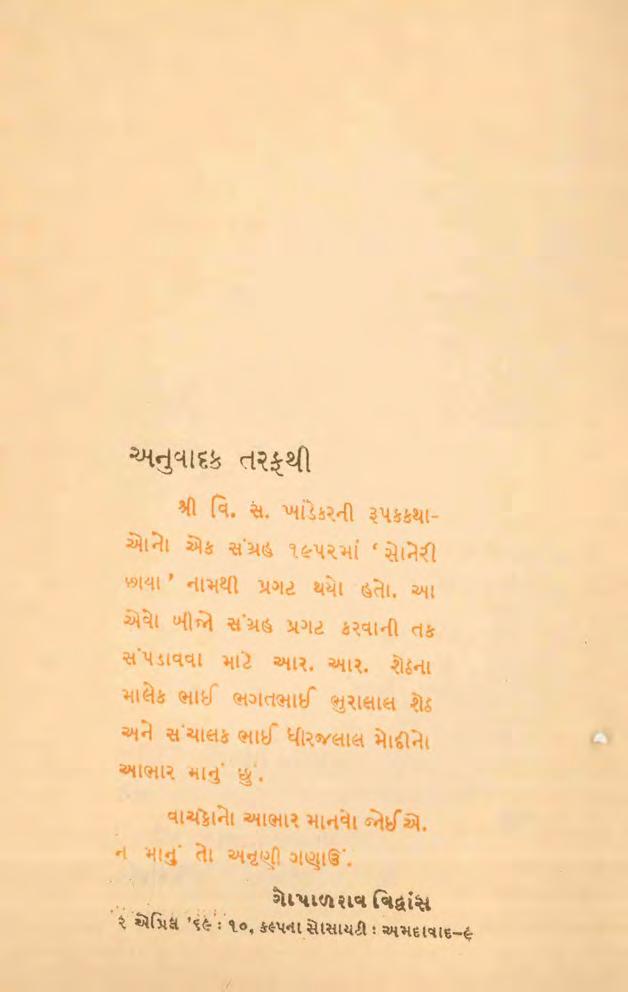 અનુવાદક તરફથી
શ્રી વિ. સ. ખાંડેકરની રૂપકકથા-
ઓનો એક સંગ્રહ ૧૯૫૨માં ‘ સોનેરી
છાયા ’ નામથી પ્રગટ થયો હતો. આ
એવો બીજો સંગ્રહ પ્રગટ કરવાની તક
સંપડાવવા માટે આર. આર. શેઠના
માલેક ભાઈ ભગતભાઈ ભુરાલાલ શેઠ
અને સંચાલક ભાઈ ધીરજલાલ મોદીનો
આભાર માનું છું.
વાચકોનો આભાર માનવો જોઈએ.
ન માનું તો અનૃણી ગણાઉં.
ગોપાળરાવ વિદ્વાંસ
૨ એપ્રિલ ’૬૯ : ૧૦, કલ્પના સોસાયટી : અમદાવાદ–૯